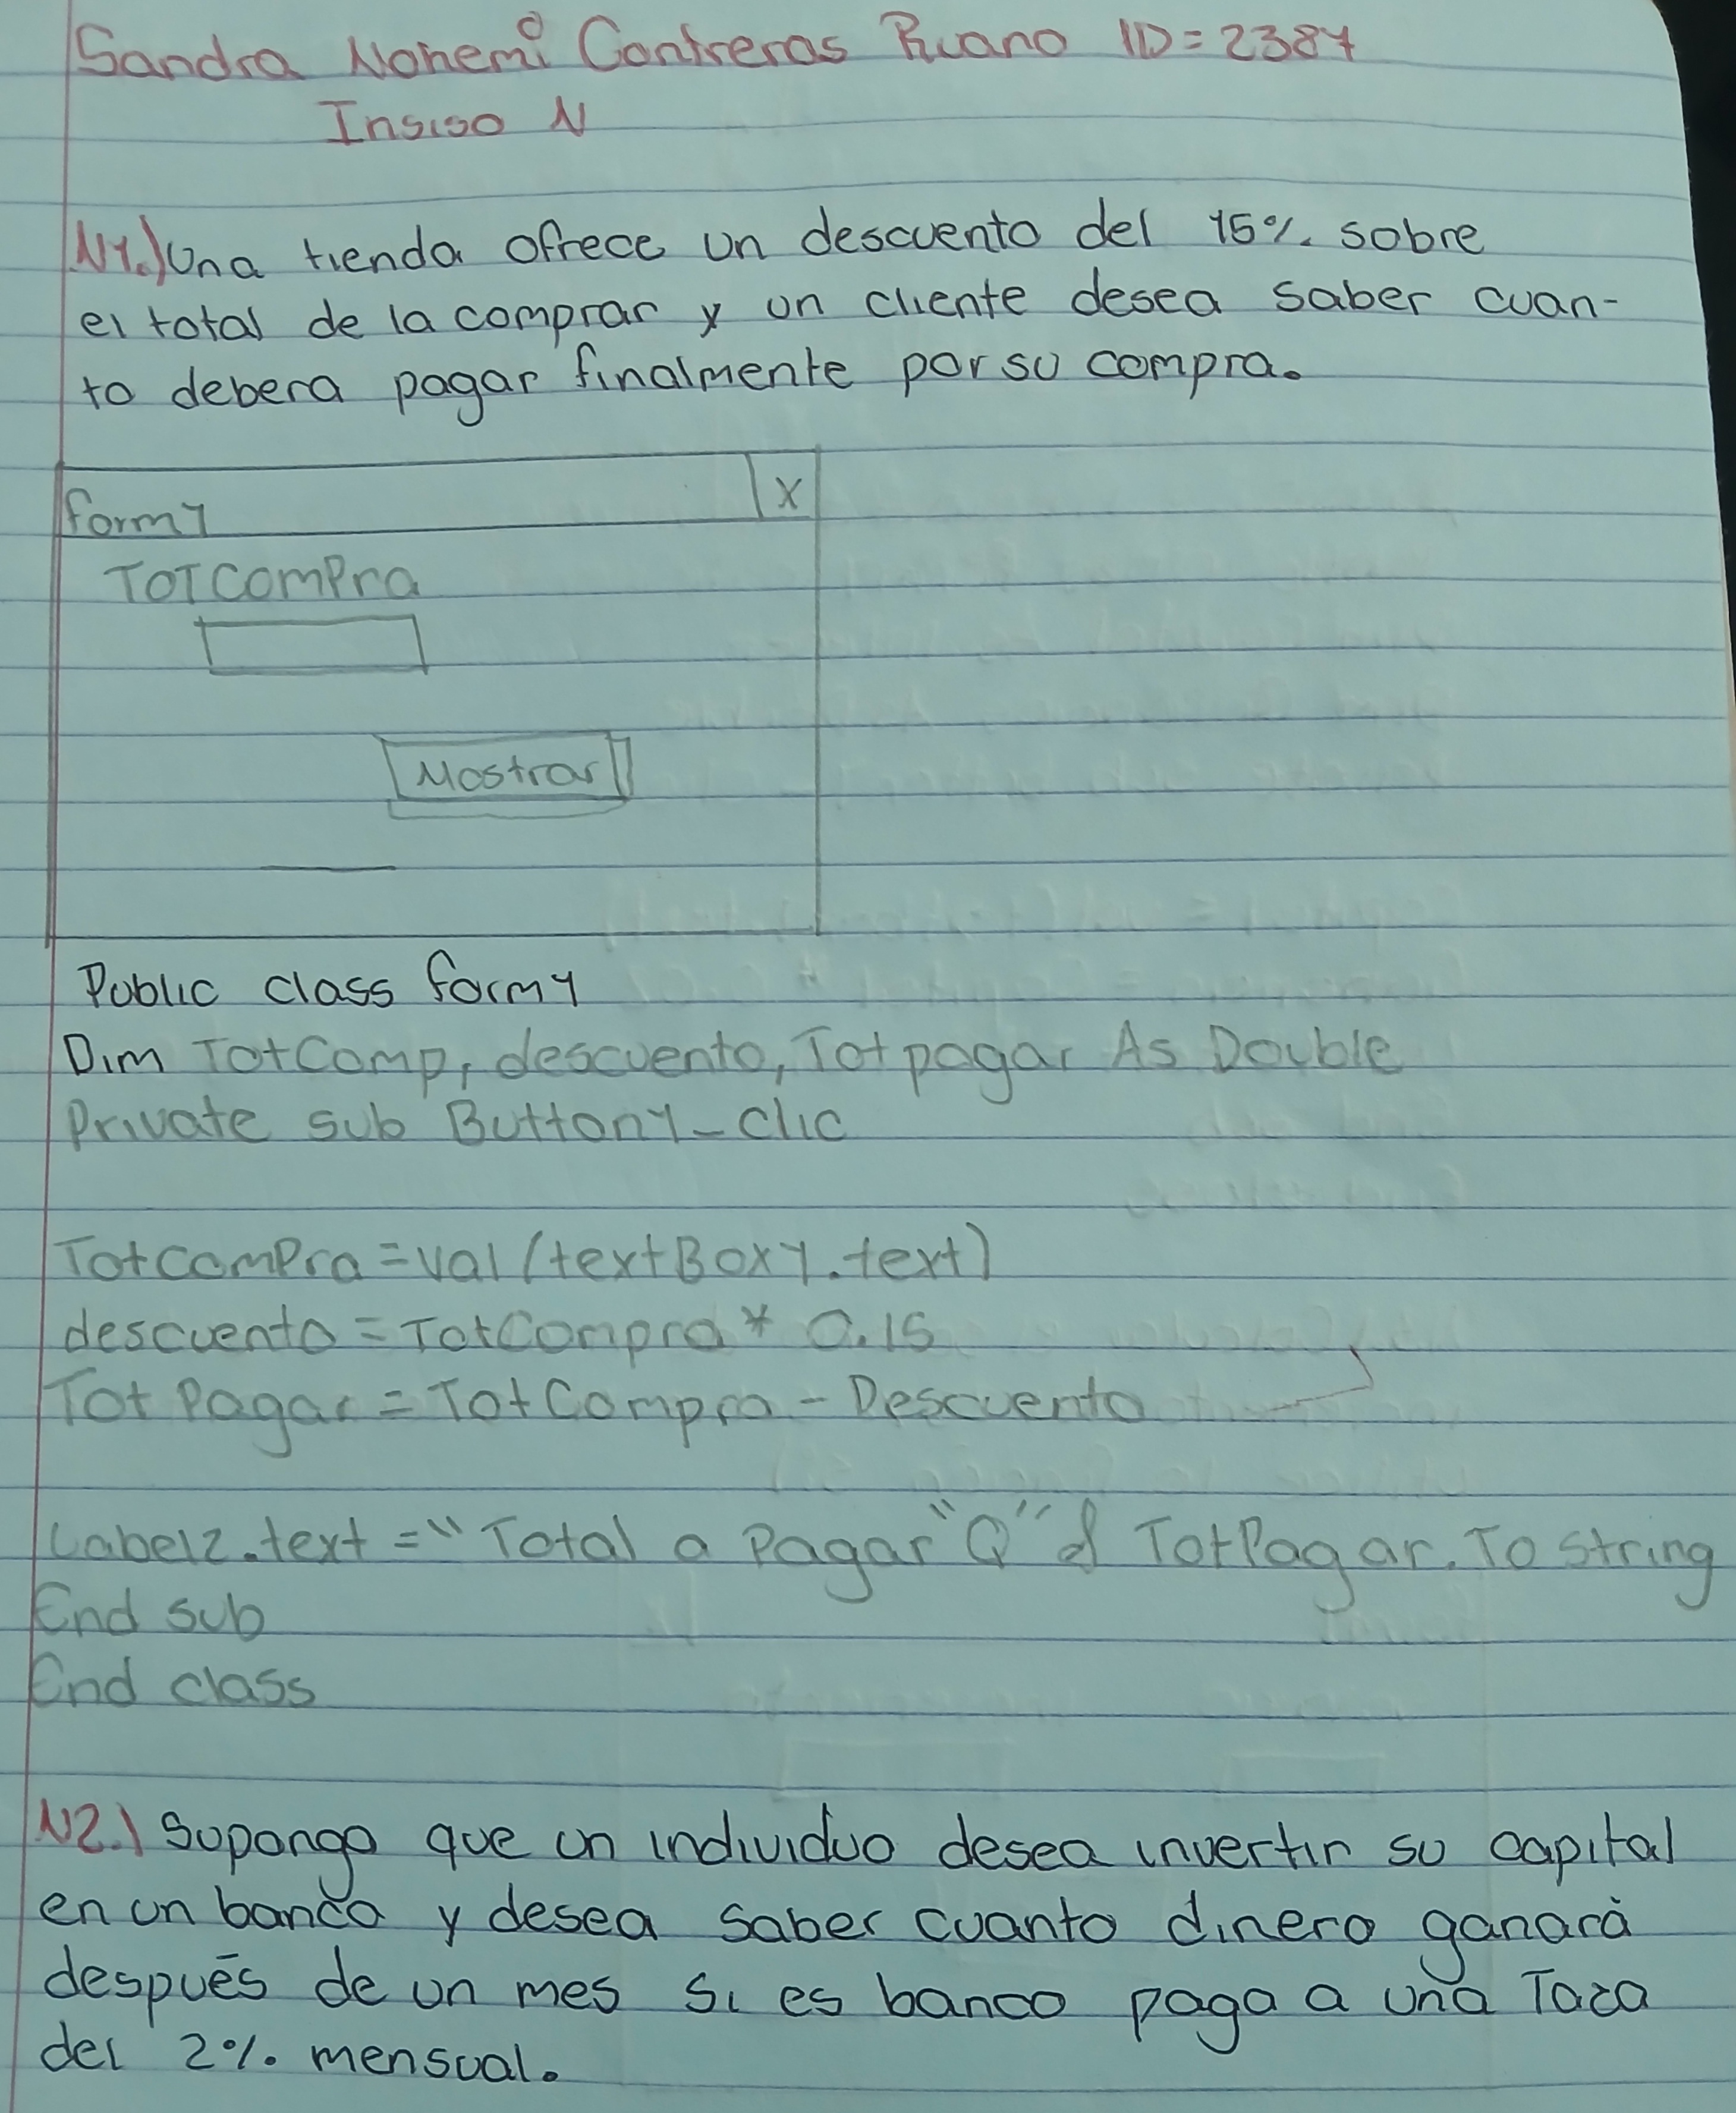 Sandra Nohemí Contreras Ruano ID=2387
Insiso N
N1.) Una tienda ofrece un descuento del 15% sobre
el total de la comprar y un cliente desea saber cuan-
to debera pagar finalmente por su compra.
form1 X
TOTCOMPra
Mostrar
Public class form1
Dim TotComp, descuento, Totpagar As Double
Private sub Button1_clic
TotcomPra = val (textBox1.text)
descuento = TotCompra * 0.15
Tot Pagar = TotCompra - Descuento
Label2.text = "Total a Pagar "Q" & TotPagar.To string
End sub
End class
N2.) Suponga que un individuo desea invertir su capital
en un banco y desea saber cuanto dinero ganará
después de un mes si es banco paga a una Taza
del 2% mensual.